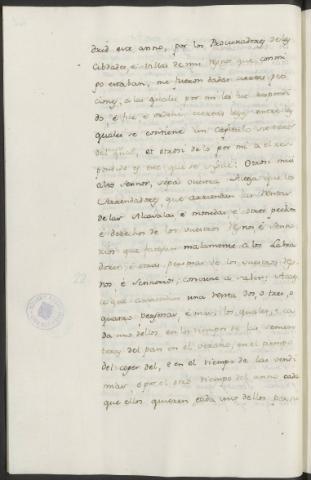 dicid este anno, por los Procuradores de las
Cibdades, é Villas de mis Reynos que con mi-
go estaban, me fueron dadas ciertas peti-
ciones, a las quales por mi les fue respondi-
do, é fice é mandé ciertas leyes entre las
quales se contiene un capitulo su tenor
del qual, et otrosi de lo por mi a el res-
pondido es este que se sigue: Otrosi mui
alto Sennor, sepa vuestra Alteza que los
Arrendadores que arriendan las Rentas
de las Alcavalas, é monedas, é otros pechos
é derechos de los vuestros Reynos, é Senno-
rios que fatigan malamente a los Labra-
dores, é otras personas de los vuestros Rey-
nos, é Sennorios; conviene a saber; Acaes-
ce que arriendan una renta dos, o tres, o
quatro personas, é mas; los quales, é ca-
da uno dellos, en los tiempos de las semen-
teras del pan en el verano, en el tiempo
del coger del, é en el tiempo de las vendi-
mias, é por el otro tiempo del anno cada
que ellos quieren cada uno dellos por su